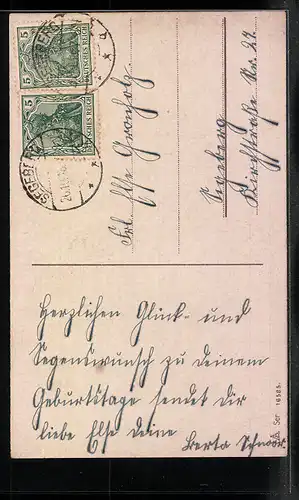 5
DEUTSCHES REICH
SEGEBERG
5
DEUTSCHES REICH
SEGEBERG
Frl. Else
Segeberg
Kirchstraße Nr. 22
Herzlichen Glück- und
Segenswunsch zu deinem
Geburtstage sendet dir
liebe Else deine
Berta Schnoor.
Ser 16586.